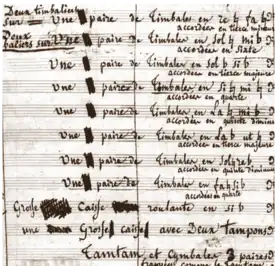 Deux timbaliers
sur Une paire de Timbales en re ♮ fa ♮
accordées en tierce mineure
Deux
baliers sur Une paire de Timbales en sol ♮ mi ♭
accordées en sixte
Une paire de Timbales en sol ♭ si ♭
accordées en tierce majeure
Une paire de Timbales en si ♮ mi ♮
accordées en quarte
Une paire de Timbales en la ♮ mi ♭
accordées en quinte diminuée
Une paire de Timbales en la ♭ ut ♮
accordées en tierce majeure
Une paire de Timbales en sol ♯ re ♮
accordées en quinte diminuée
Une paire de Timbales en fa ♮ si ♭
accordées en quarte
Grosse Caisse roulante en si ♭
une Grosse caisse avec Deux tampons
Tamtam et Cymbales 3 paires